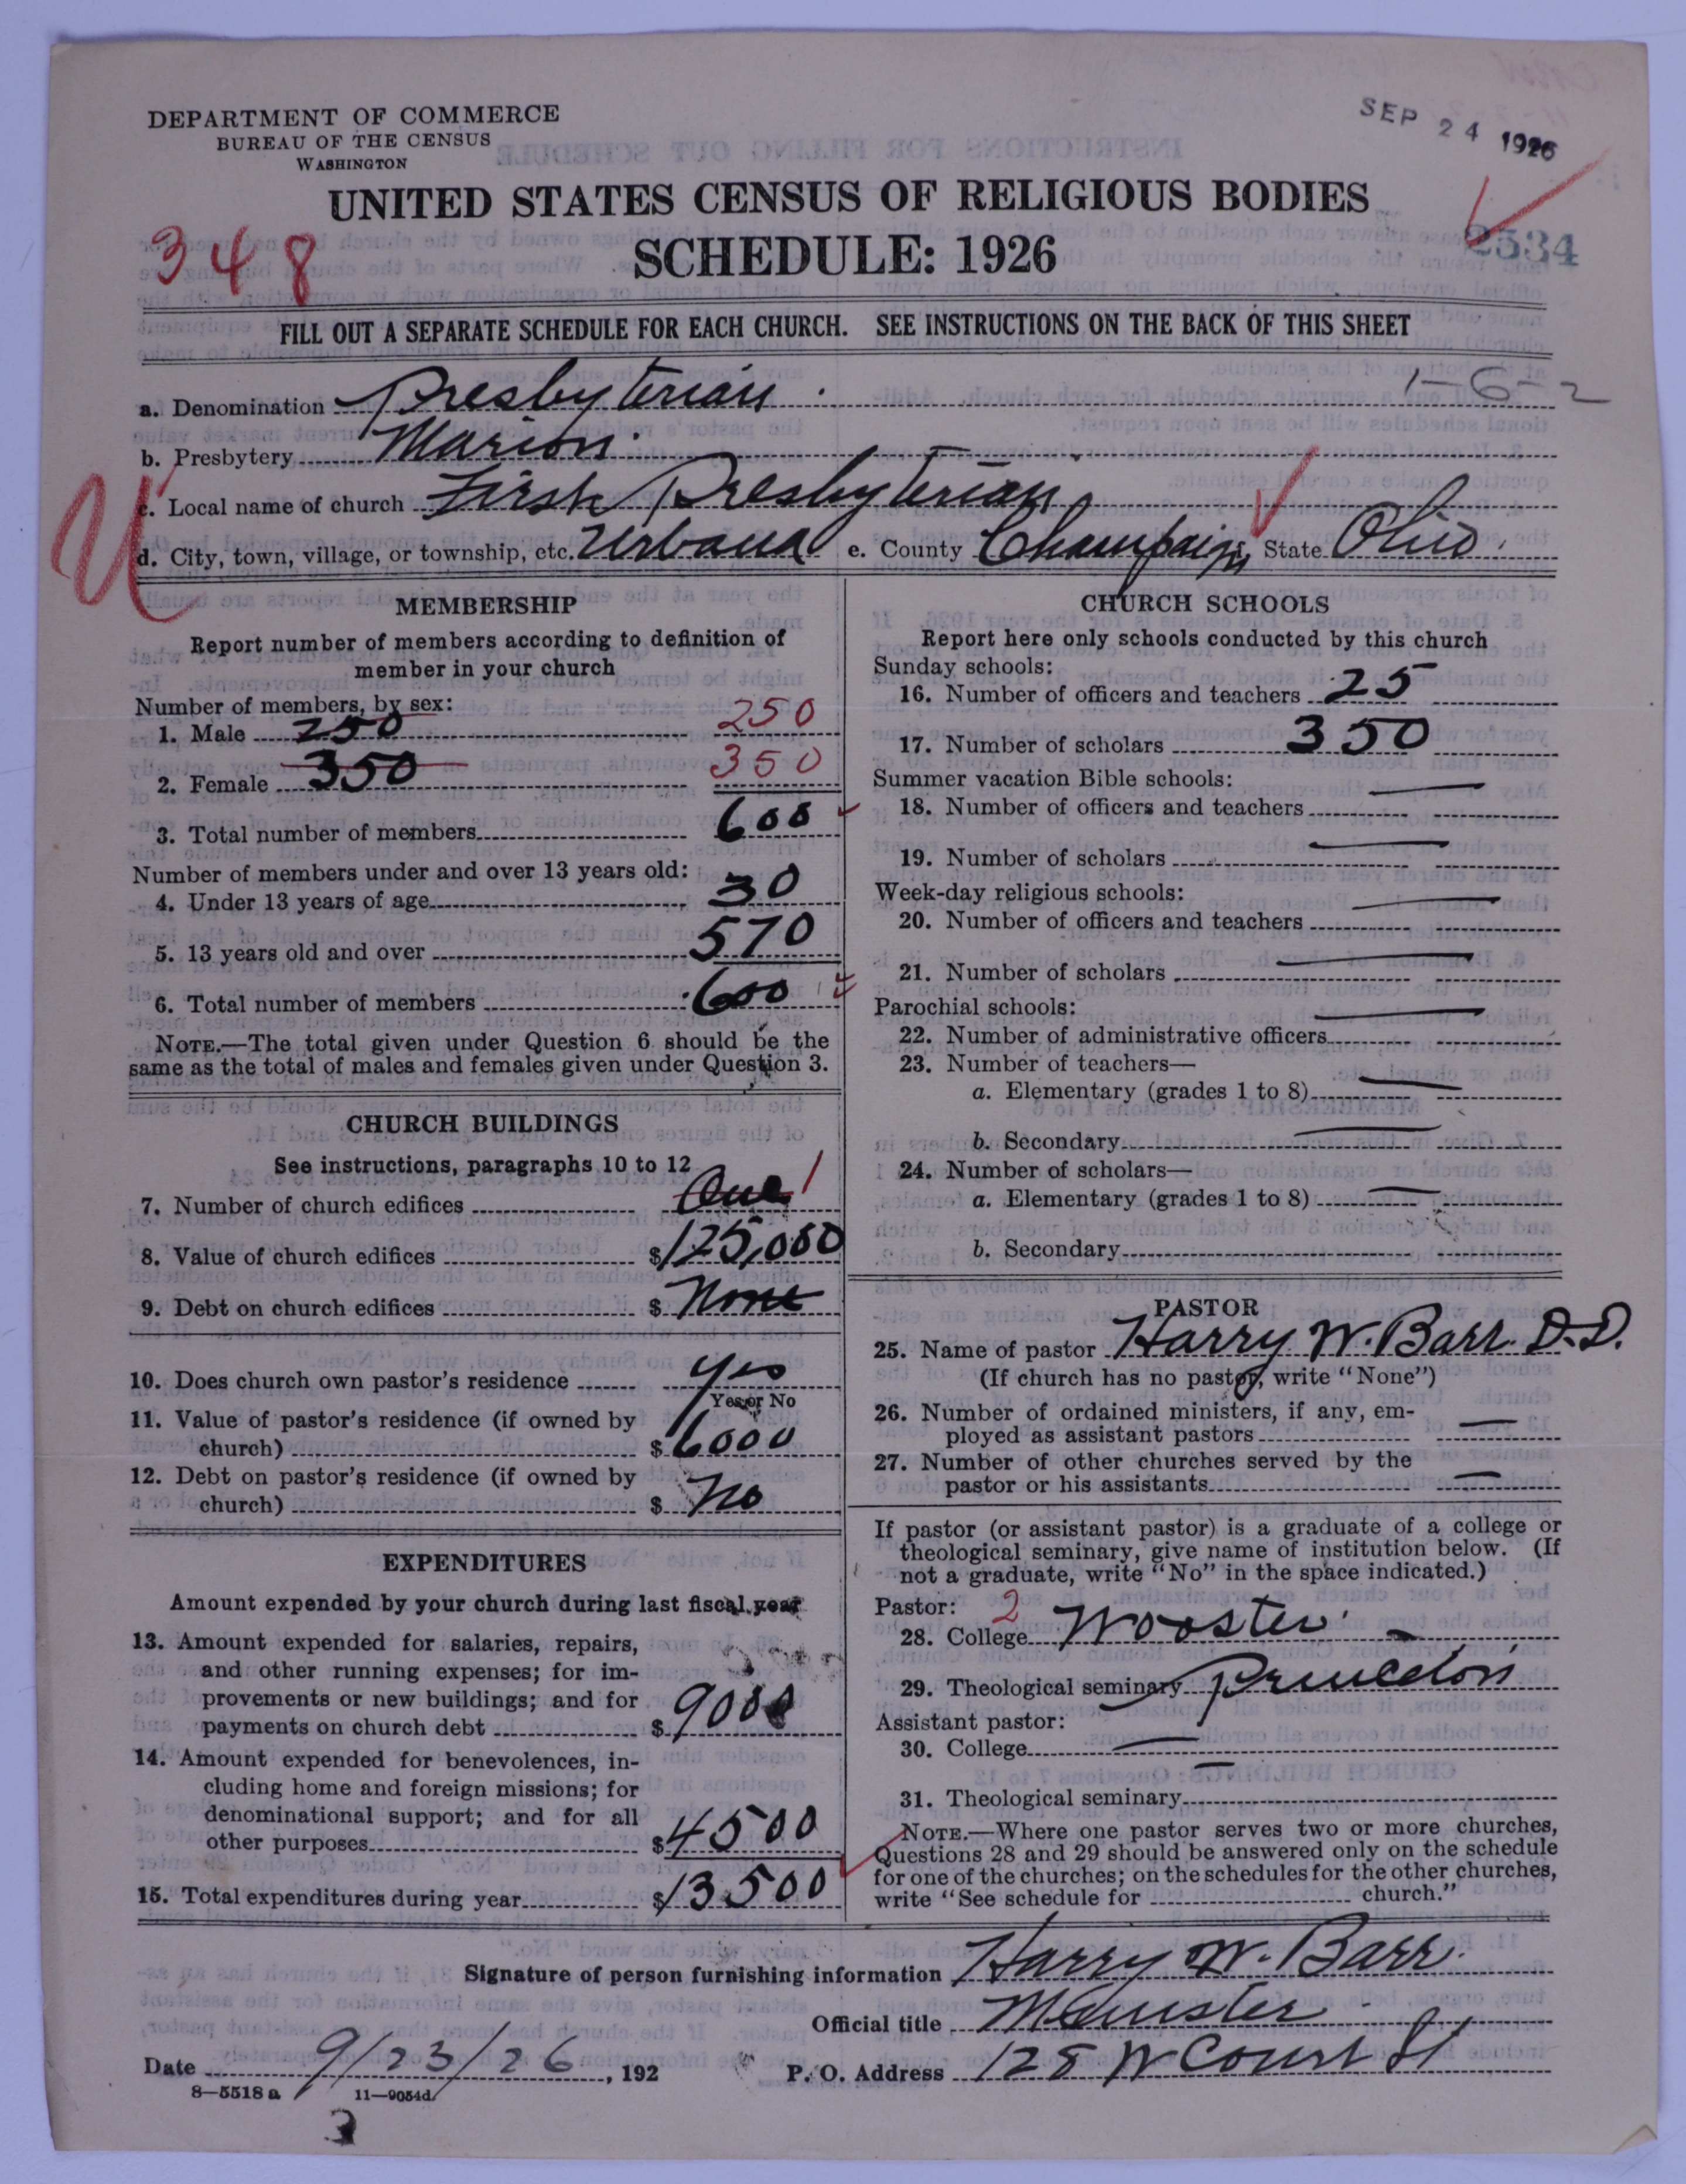 DEPARTMENT OF COMMERCE
BUREAU OF THE CENSUS
WASHINGTON
SEP 24 1926
UNITED STATES CENSUS OF RELIGIOUS BODIES
348
SCHEDULE: 1926
2534
FILL OUT A SEPARATE SCHEDULE FOR EACH CHURCH. SEE INSTRUCTIONS ON THE BACK OF THIS SHEET
1-6-2
a. Denomination Presbyterian
b. Presbytery Marion
c. Local name of church First Presbyterian
U
d. City, town, village, or township, etc. Urbana e. County Champain, State Ohio
MEMBERSHIP
Report number of members according to definition of
member in your church
Number of members, by sex:
1. Male 250 250
2. Female 350 350
3. Total number of members 600
Number of members under and over 13 years old:
4. Under 13 years of age 30
5. 13 years old and over 570
6. Total number of members 600
NOTE.—The total given under Question 6 should be the
same as the total of males and females given under Question 3.
CHURCH BUILDINGS
See instructions, paragraphs 10 to 12
7. Number of church edifices One 1
8. Value of church edifices $125,000
9. Debt on church edifices $ None
10. Does church own pastor's residence Yes
Yes or No
11. Value of pastor's residence (if owned by
church) $6000
12. Debt on pastor's residence (if owned by
church) $ No
EXPENDITURES
Amount expended by your church during last fiscal year
13. Amount expended for salaries, repairs,
and other running expenses; for im-
provements or new buildings; and for
payments on church debt $9000
14. Amount expended for benevolences, in-
cluding home and foreign missions; for
denominational support; and for all
other purposes $4500
15. Total expenditures during year $13500
CHURCH SCHOOLS
Report here only schools conducted by this church
Sunday schools:
16. Number of officers and teachers 25
17. Number of scholars 350
Summer vacation Bible schools:
18. Number of officers and teachers —
19. Number of scholars —
Week-day religious schools:
20. Number of officers and teachers —
21. Number of scholars —
Parochial schools:
22. Number of administrative officers —
23. Number of teachers—
a. Elementary (grades 1 to 8) —
b. Secondary —
24. Number of scholars—
a. Elementary (grades 1 to 8) —
b. Secondary
PASTOR
25. Name of pastor Harry W. Barr D.D.
(If church has no pastor, write "None")
26. Number of ordained ministers, if any, em-
ployed as assistant pastors —
27. Number of other churches served by the
pastor or his assistants —
If pastor (or assistant pastor) is a graduate of a college or
theological seminary, give name of institution below. (If
not a graduate, write "No" in the space indicated.)
Pastor: 2
28. College Wooster
29. Theological seminary Princeton
Assistant pastor:
30. College —
31. Theological seminary —
NOTE.—Where one pastor serves two or more churches,
Questions 28 and 29 should be answered only on the schedule
for one of the churches; on the schedules for the other churches,
write "See schedule for church."
Signature of person furnishing information Harry W. Barr
Official title Minister
Date 9/23/26, 192 P. O. Address 128 W Court St
8—5518 a 11—9054d
3